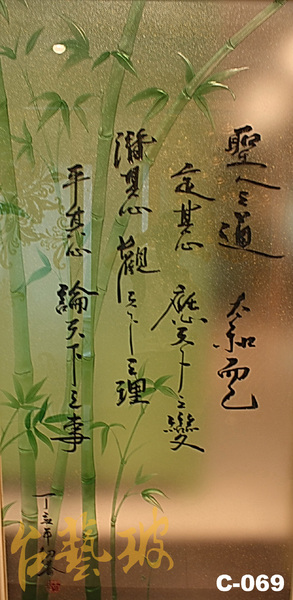 聖人之道 太和而已
定其心 應天下之變
潛其心 觀天下之理
平其心 論天下之事
丁亥年
玻藝台
C-069